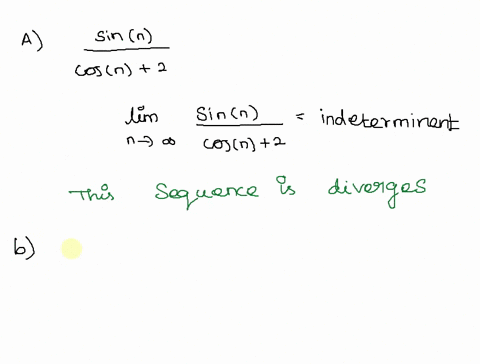 A) sin(n) / cos(n) + 2
lim n→∞ sin(n) / cos(n) + 2 = indeterminent
This Sequence is diverges
b)